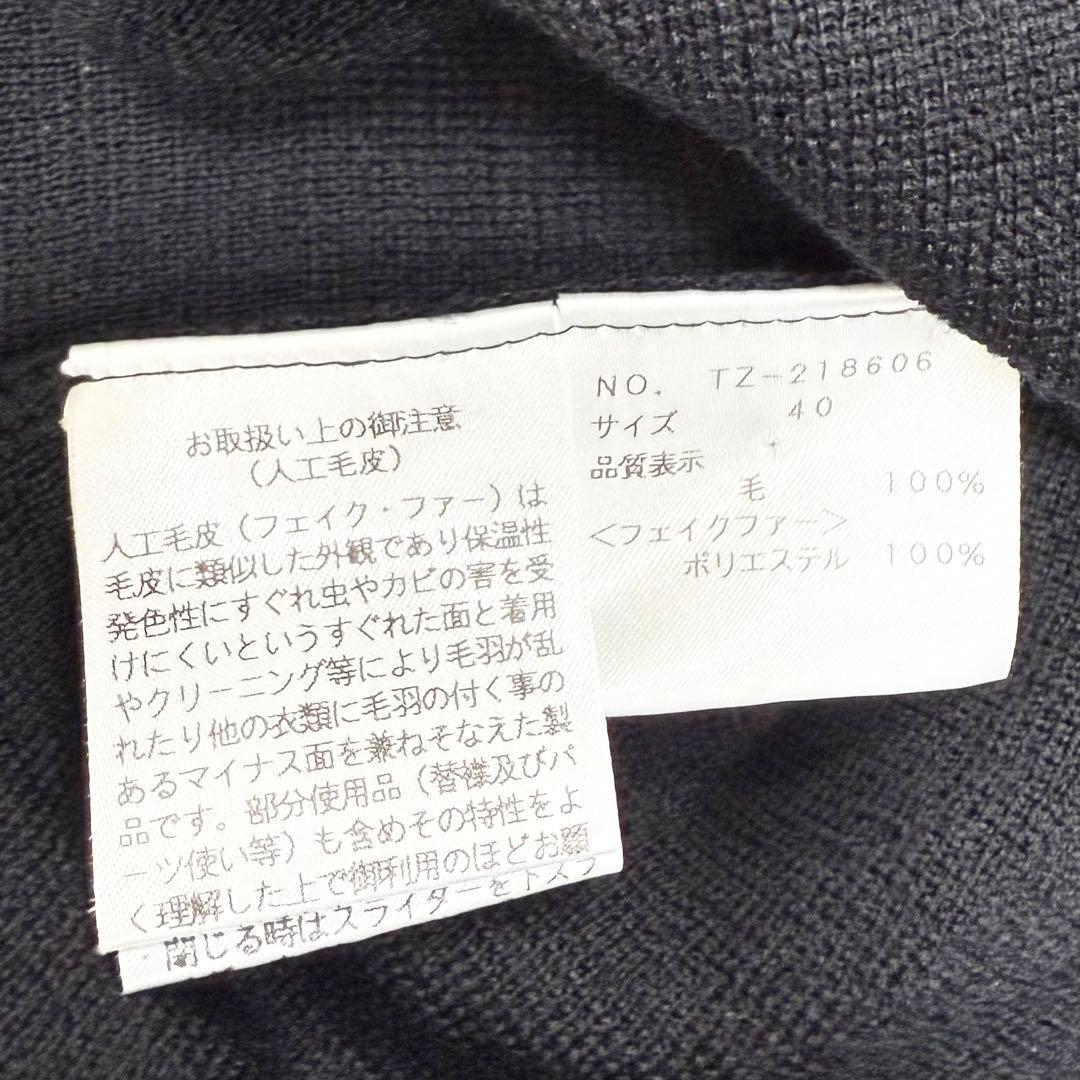 お取扱い上の御注意
(人工毛皮)
人工毛皮(フェイク・ファー)は
毛皮に類似した外観であり保温性
発色性にすぐれ虫やカビの害を受
けにくいというすぐれた面と着用
やクリーニング等により毛羽が乱
れたり他の衣類に毛羽の付く事の
あるマイナス面を兼ねそなえた製
品です。部分使用品(替襟及びパ
ーツ使い等)も含めその特性をよ
く理解した上で御利用のほどお願
閉じる時はスライダーを下
NO. TZ-218606
サイズ 40
品質表示
毛 100%
<フェイクファー>
ポリエステル 100%